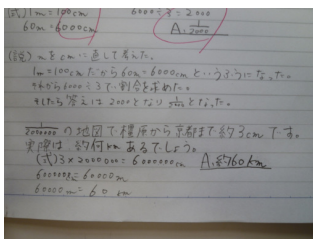 (式) 1m=100cm 6000÷3=2000
60m=6000cm A. 1/2000
(説) mをcmに直して考えた。
1m=100cmだから60m=6000cmというふうになった。
それから6000÷3で割合を求めた。
そしたら答えは2000となり1/2000となった。
1/2000000の地図で橿原から京都まで約3cmです。
実際は約何kmあるでしょう。
(式)3×2000000=6000000cm A.約60km
6000000cm=60000m
60000m=60km